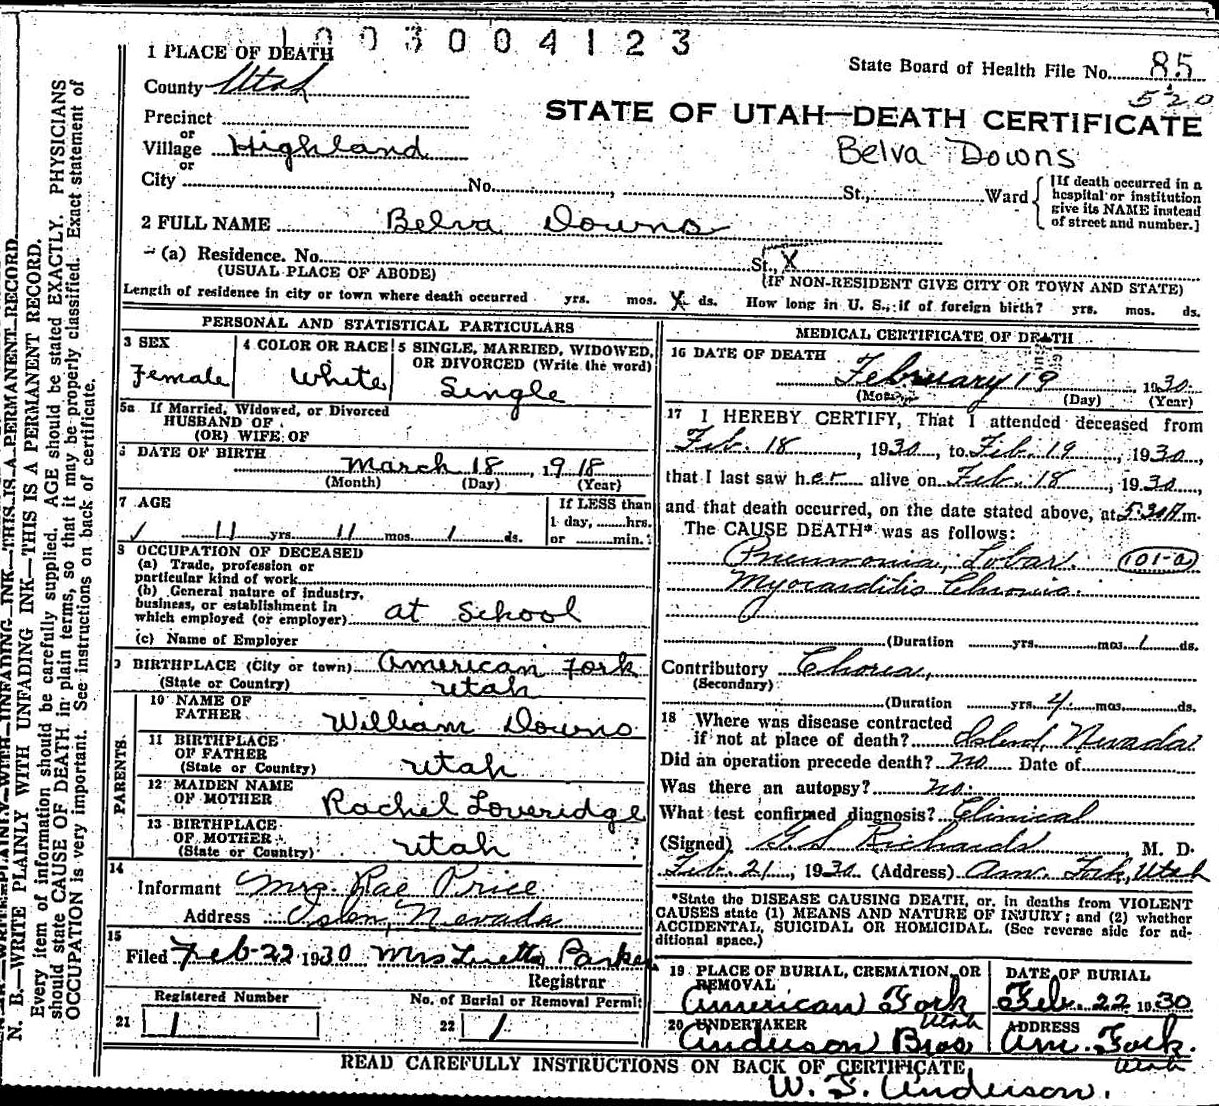 1003004123
1 PLACE OF DEATH
State Board of Health File No. 85
520
County Utah
STATE OF UTAH—DEATH CERTIFICATE
Precinct
or
Village Highland
Belva Downs
or
City No. , St., Ward
[If death occurred in a
hospital or institution
give its NAME instead
of street and number.]
2 FULL NAME Belva Downs
(a) Residence. No. St., X
(USUAL PLACE OF ABODE) (IF NON-RESIDENT GIVE CITY OR TOWN AND STATE)
Length of residence in city or town where death occurred yrs. mos. X ds. How long in U. S., if of foreign birth? yrs. mos. ds.
PERSONAL AND STATISTICAL PARTICULARS
3 SEX
Female
4 COLOR OR RACE
White
5 SINGLE, MARRIED, WIDOWED,
OR DIVORCED (Write the word)
Single
5a If Married, Widowed, or Divorced
HUSBAND OF
(OR) WIFE OF
DATE OF BIRTH
March 18, 1918
(Month) (Day) (Year)
7 AGE
11 yrs. 11 mos. 1 ds.
If LESS than
1 day, hrs.
or min.
8 OCCUPATION OF DECEASED
(a) Trade, profession or
particular kind of work
(b) General nature of industry,
business, or establishment in
which employed (or employer) at School
(c) Name of Employer
9 BIRTHPLACE (City or town) American Fork
(State or Country) Utah
PARENTS
10 NAME OF
FATHER William Downs
11 BIRTHPLACE
OF FATHER
(State or Country) Utah
12 MAIDEN NAME
OF MOTHER Rachel Loveridge
13 BIRTHPLACE
OF MOTHER
(State or Country) Utah
14
Informant Mrs. Rae Price
Address Islen, Nevada
15
Filed Feb-22 1930 Mrs Parker
Registrar
Registered Number
21 1
No. of Burial or Removal Permit
22 1
MEDICAL CERTIFICATE OF DEATH
16 DATE OF DEATH
February 19, 1930
(Month) (Day) (Year)
17 I HEREBY CERTIFY, That I attended deceased from
Feb. 18, 1930, to Feb. 19, 1930,
that I last saw her alive on Feb. 18, 1930,
and that death occurred, on the date stated above, at 5:30 A m.
The CAUSE DEATH* was as follows:
Pneumonia, Lobar. 101-a
Myocarditis Chronic.
(Duration yrs. mos. 1 ds.
Contributory Chorea,
(Secondary)
(Duration yrs. 4 mos. ds.
18 Where was disease contracted
if not at place of death? Nevada
Did an operation precede death? no Date of
Was there an autopsy? no.
What test confirmed diagnosis? Clinical
(Signed) G.S. Richards, M. D.
Feb. 21, 1930 (Address) Am. Fork, Utah
*State the DISEASE CAUSING DEATH, or, in deaths from VIOLENT
CAUSES state (1) MEANS AND NATURE OF INJURY; and (2) whether
ACCIDENTAL, SUICIDAL OR HOMICIDAL. (See reverse side for ad-
ditional space.)
19 PLACE OF BURIAL, CREMATION, OR
REMOVAL
American Fork
Utah
DATE OF BURIAL
Feb. 22 1930
20 UNDERTAKER
Anderson Bros
ADDRESS
Am. Fork.
Utah
READ CAREFULLY INSTRUCTIONS ON BACK OF CERTIFICATE
W. S. Anderson.
N. B.—WRITE PLAINLY WITH UNFADING INK—THIS IS A PERMANENT RECORD.
Every item of information should be carefully supplied. AGE should be stated EXACTLY. PHYSICIANS
should state CAUSE OF DEATH in plain terms, so that it may be properly classified. Exact statement of
OCCUPATION is very important. See instructions on back of certificate.